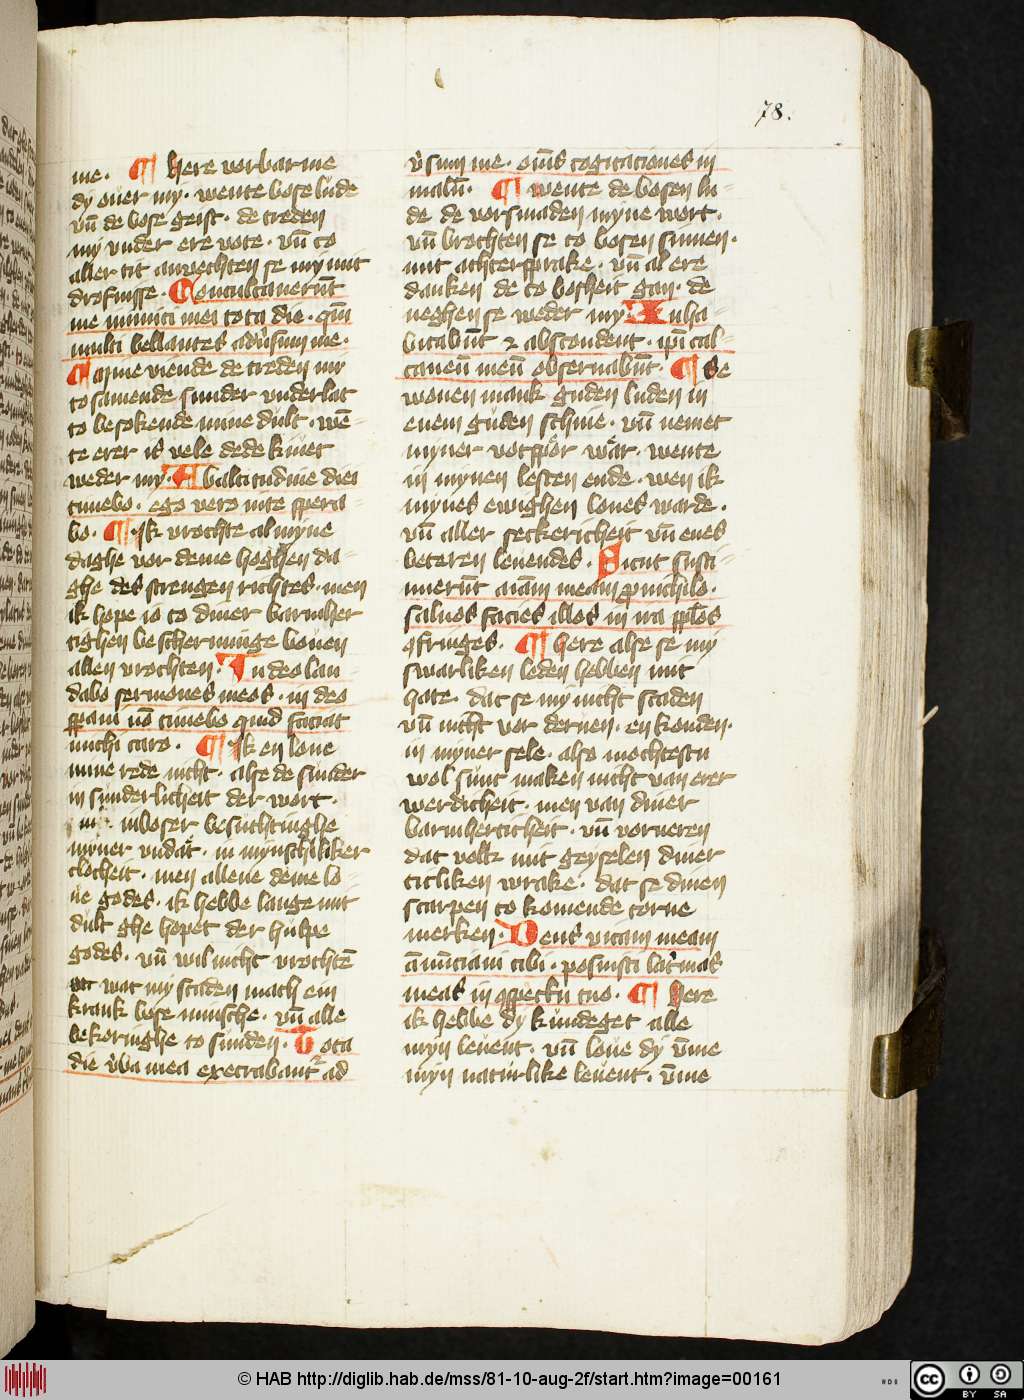 78.
me. ¶ Here vorbarme
dy ouer my. wente bose lude
vn̄ de bose geist. de treden
my vnder ere vote. vn̄ to
aller tit anvechten se my mit
drofnisse. Conculcauerūt
me inimici mei tota die. qm̄
multi bellantes adu̓sum me.
¶ Myne viende de treden my
to samende sunder vnderlat
to besokende mine dult. wē-
te erer is vele dede kiuet
weder my. Ab altitudine diei
timebo. ego vero in te spera-
bo. ¶ Ik vrochte al myne
daghe vor deme hoghen da-
ghe des strengen richtes. men
ik hope io to diner barmher
tighen bescherminge bouen
allen vrochten. In deo lau-
dabo sermones meos. in deo
speraui nō timebo quid faciat
michi caro. ¶ Ik en loue
mine rede nicht. alse de sunder
in sunderlicheit der wort.
in boser besuchtinghe
myner vndat. in mynschliker
clocheit. men allene deme lo-
ue godes. ik hebbe lange mit
dult ghe hopet der hulpe
godes. vn̄ wil nicht vrochtē
wat my scaden mach ein
krank bose minsche. vn̄ alle
bekoringhe to sunden. Tota
die v̓ba mea execrabant᷑ ad
v̓sum me. oēs cogitaciones in
malū. ¶ Wente de bosen lu-
de de vorsmaden myne wort.
vn̄ brochten se to bosen sinnen.
mit achtersprake. vn̄ al ere
danken de to bosheit gan. de
neghen se weder my. Inha-
bitabūt ⁊ abscondent. ip̄i cal-
caneū meū obseruabūt. ¶ Se
wonen mank guden luden in
enem guden schine. vn̄ nemet
myner votspor war. wente
in mynen lesten ende. wen ik
mynes ewighen loues warde.
vn̄ aller seckericheit vn̄ enes
beteren leuendes. Sicut susti-
nuerūt aīam meam pro nichilo.
saluos facies illos in ira pp̄los
ꝯfringes. ¶ Here alse se my
swarliken leden hebben mit
hate. dat se my nicht scaden
vn̄ nicht vor dernen. en konden.
in myner sele. also mochtestu
wol sunt maken nicht van erer
werdicheit. men van diner
barmherticheit. vn̄ vorneren
dat volk mit geyselen diner
titliken wrake. dat se dinen
scarpen to komende torne
merken. Deus vitam meam
ānūciaui tibi. posuisti lac̓mas
meas in ꝯspectu tuo. ¶ Here
ik hebbe dy kundeget alle
myn leuent. vn̄ loue dy vm̄e
myn naturlike leuent. vm̄e
© HAB http://diglib.hab.de/mss/81-10-aug-2f/start.htm?image=00161
HAB
cc BY SA